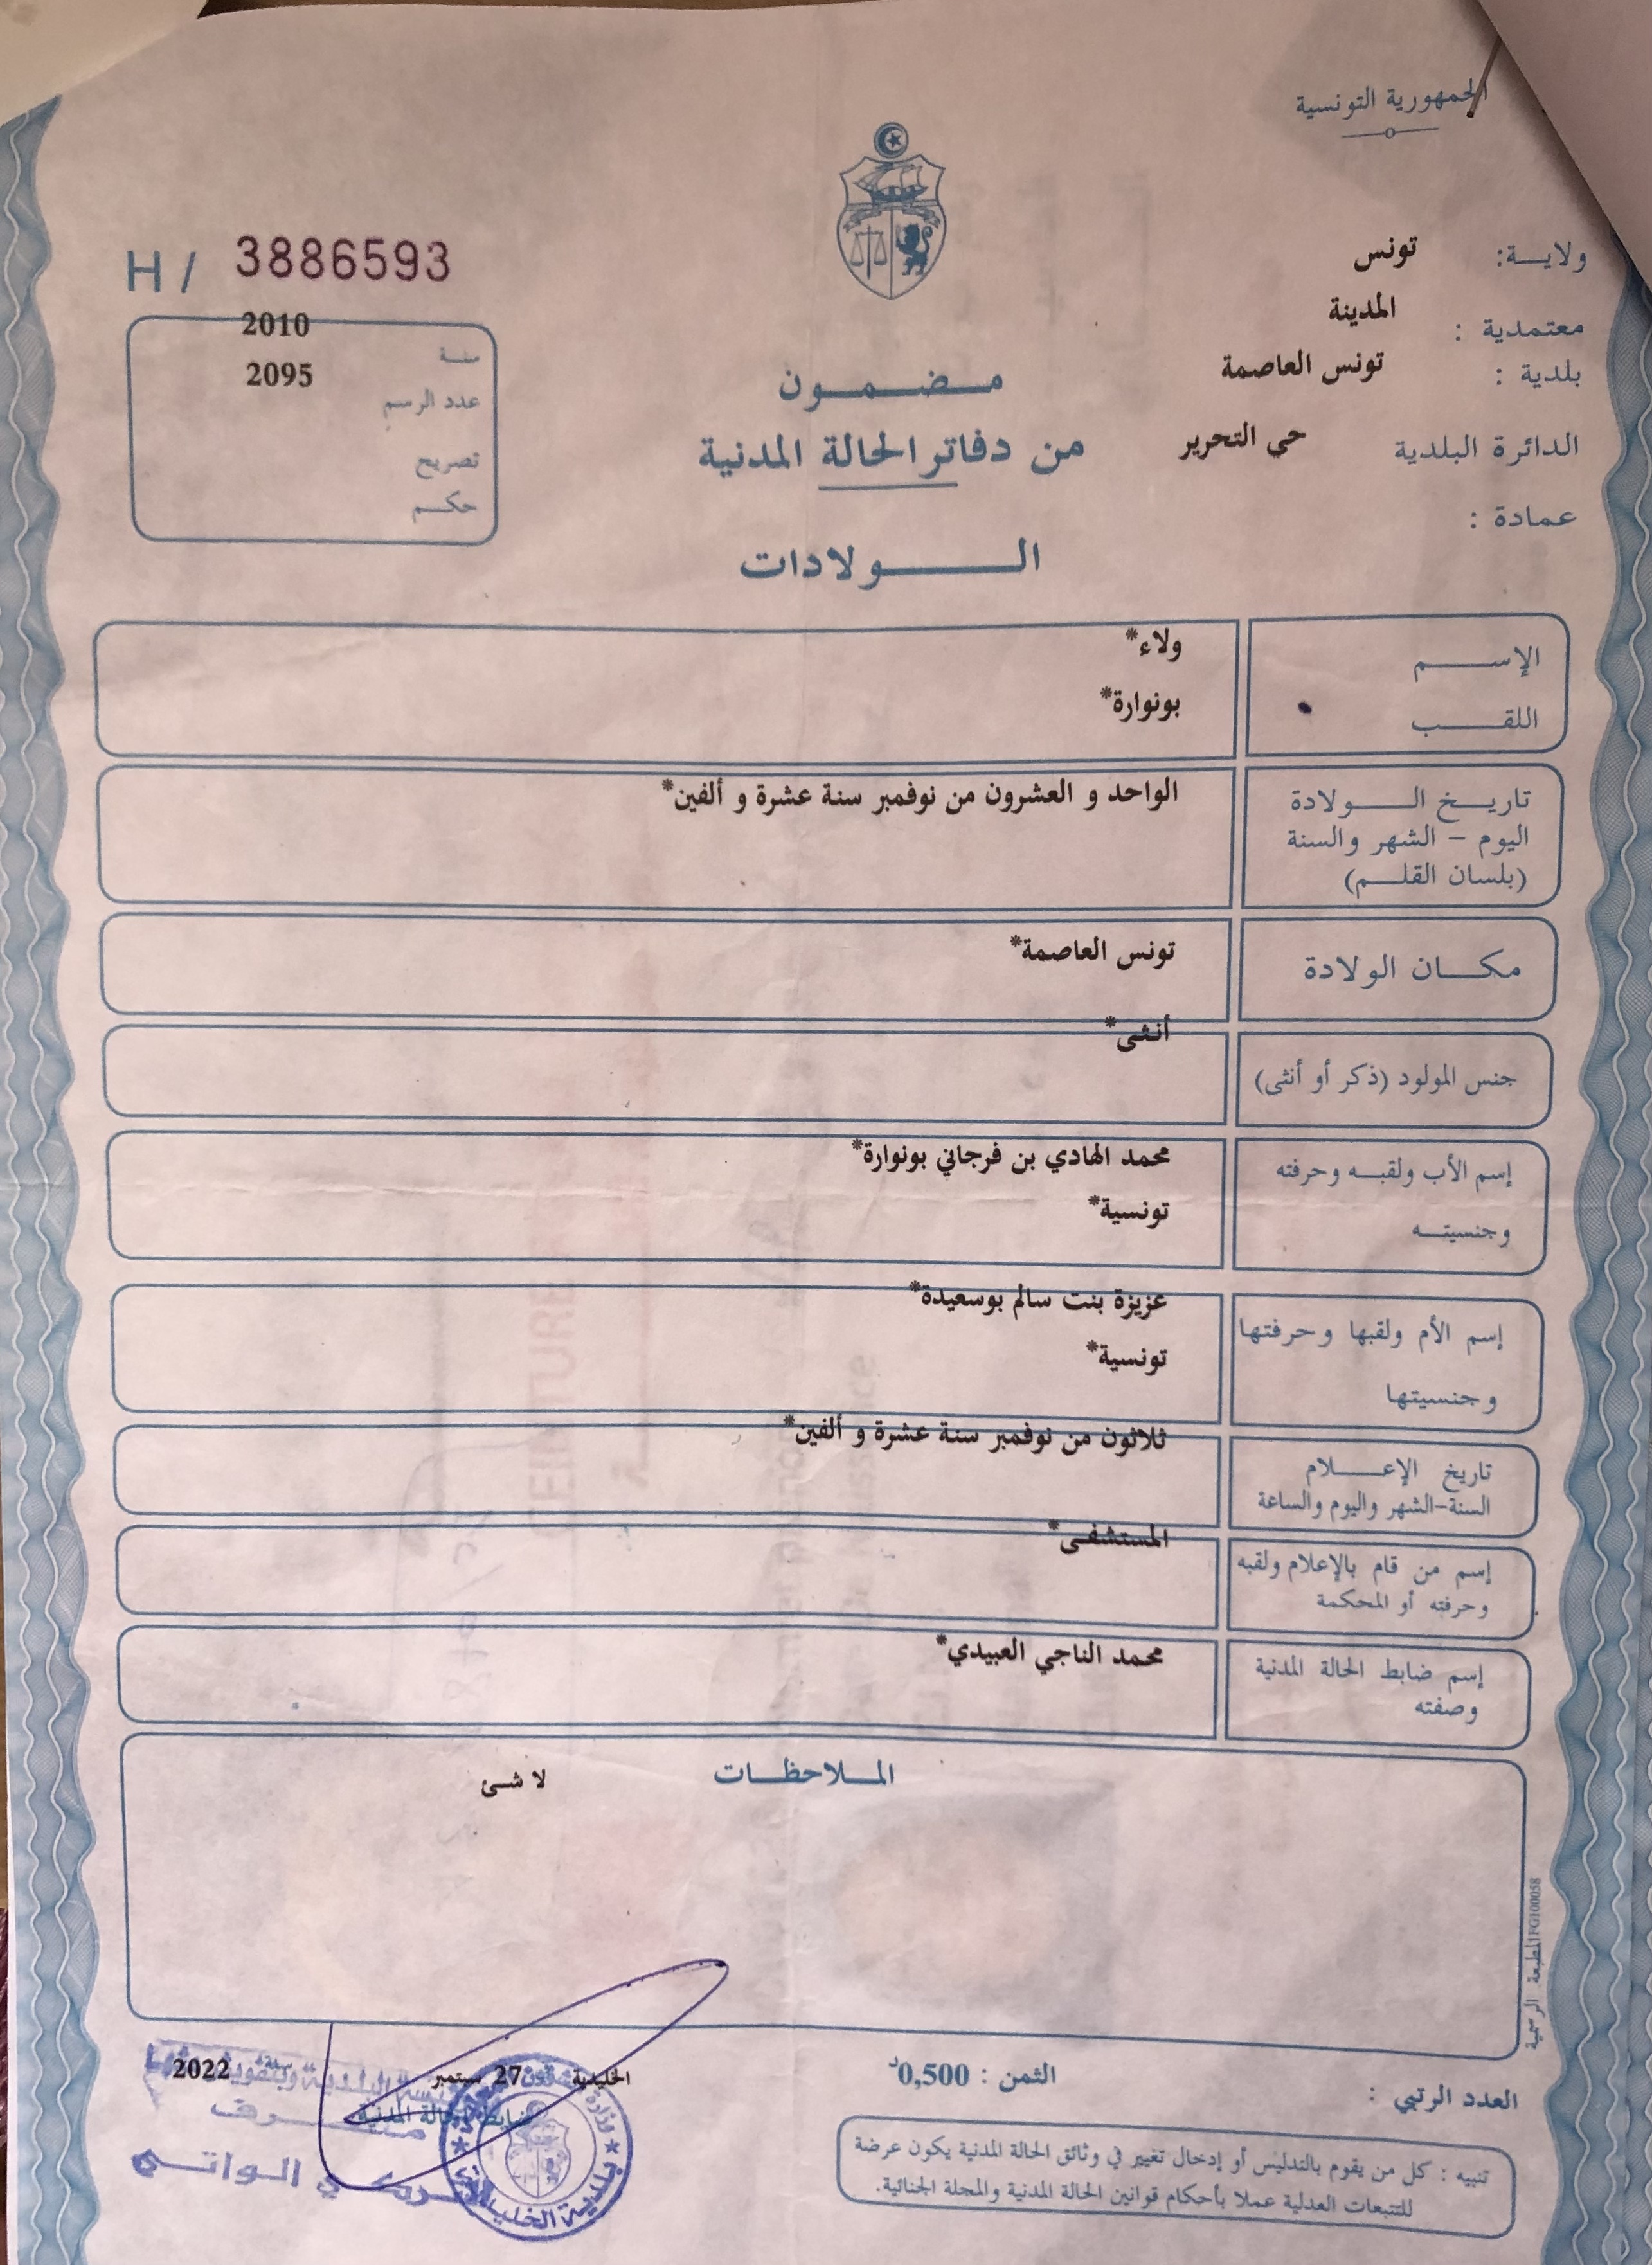 الجمهورية التونسية
ولايــة: تونس
معتمدية : المدينة
بلدية : تونس العاصمة
الدائرة البلدية حي التحرير
عمادة :
H / 3886593
سنة 2010
عدد الرسم 2095
تصريح
حكم
مضمون
من دفاتر الحالة المدنية
الولادات
الإسم ولاء*
اللقب بونوارة*
تاريخ الولادة الواحد و العشرون من نوفمبر سنة عشرة و ألفين*
اليوم – الشهر والسنة
(بلسان القلم)
مكان الولادة تونس العاصمة*
جنس المولود (ذكر أو أنثى) أنثى*
إسم الأب ولقبه وحرفته محمد الهادي بن فرجاني بونوارة*
وجنسيته تونسية*
إسم الأم ولقبها وحرفتها عزيزة بنت سالم بوسعيدة*
وجنسيتها تونسية*
تاريخ الإعلام ثلاثون من نوفمبر سنة عشرة و ألفين*
السنة-الشهر واليوم والساعة
إسم من قام بالإعلام ولقبه المستشفى*
وحرفته أو المحكمة
إسم ضابط الحالة المدنية محمد الناجي العبيدي*
وصفته
الملاحظات لا شئ
المطبعة الرسمية FG100058
العدد الرتبي :
الثمن : 0,500د
الخليدية 27 سبتمبر سنة 2022
ضابط الحالة المدنية
تنبيه : كل من يقوم بالتدليس أو إدخال تغيير في وثائق الحالة المدنية يكون عرضة
للتتبعات العدلية عملا بأحكام قوانين الحالة المدنية والمجلة الجنائية.